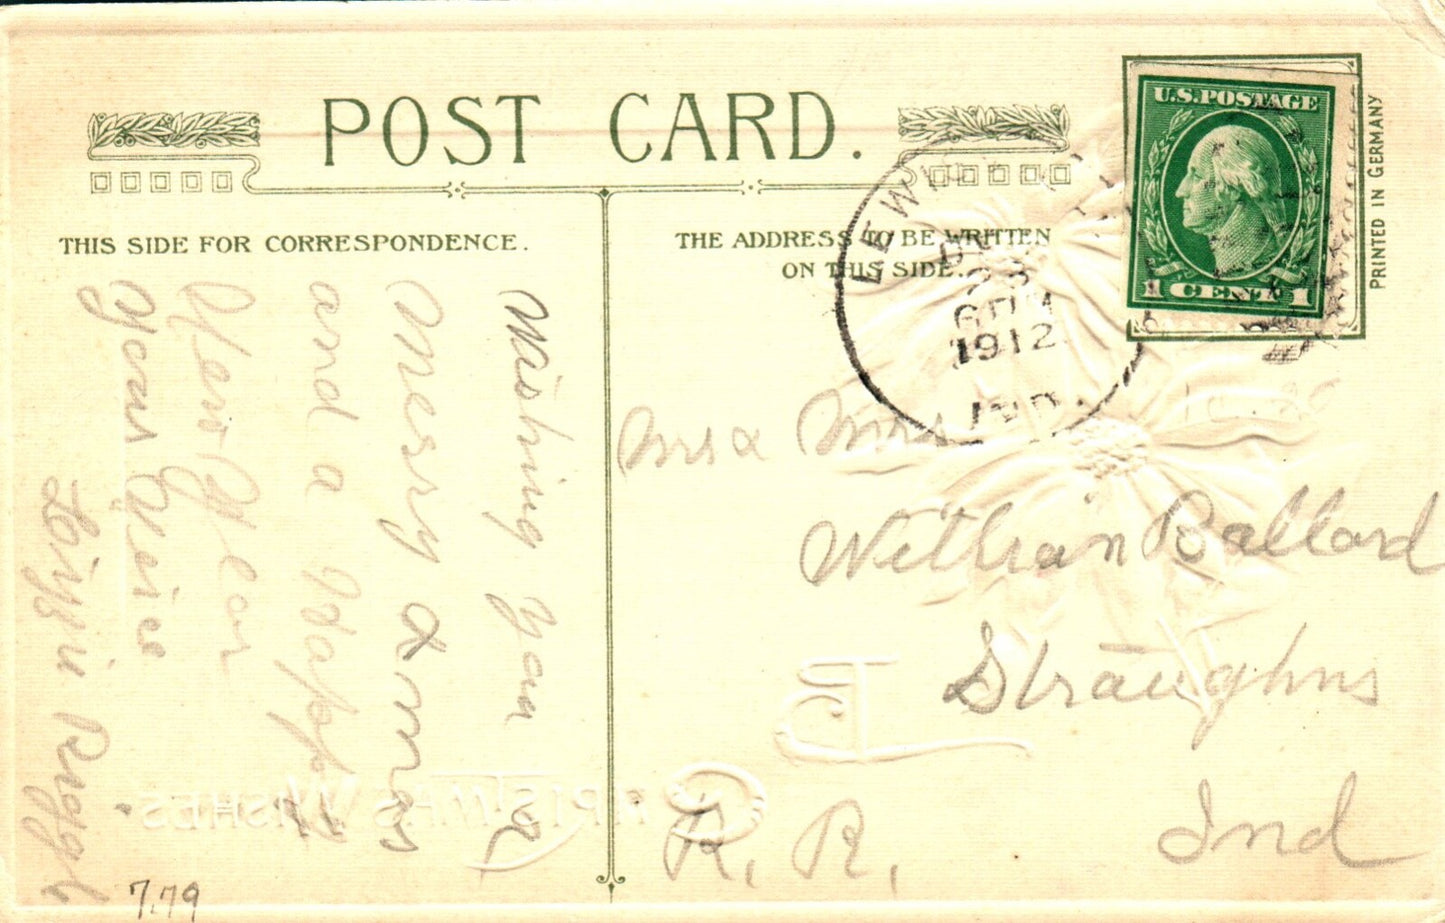 POST CARD.
THIS SIDE FOR CORRESPONDENCE.
THE ADDRESS TO BE WRITTEN
ON THIS SIDE.
U.S. POSTAGE
1 CENT 1
PRINTED IN GERMANY
DEC
23
6 PM
1912
IND.
Wishing you a
Merry Xmas
and a Happy
New Year
Ruggle
Mrs & Mrs
Ballard
Straughns
Ind
R. R.
CHRISTMAS WISHES
7.79